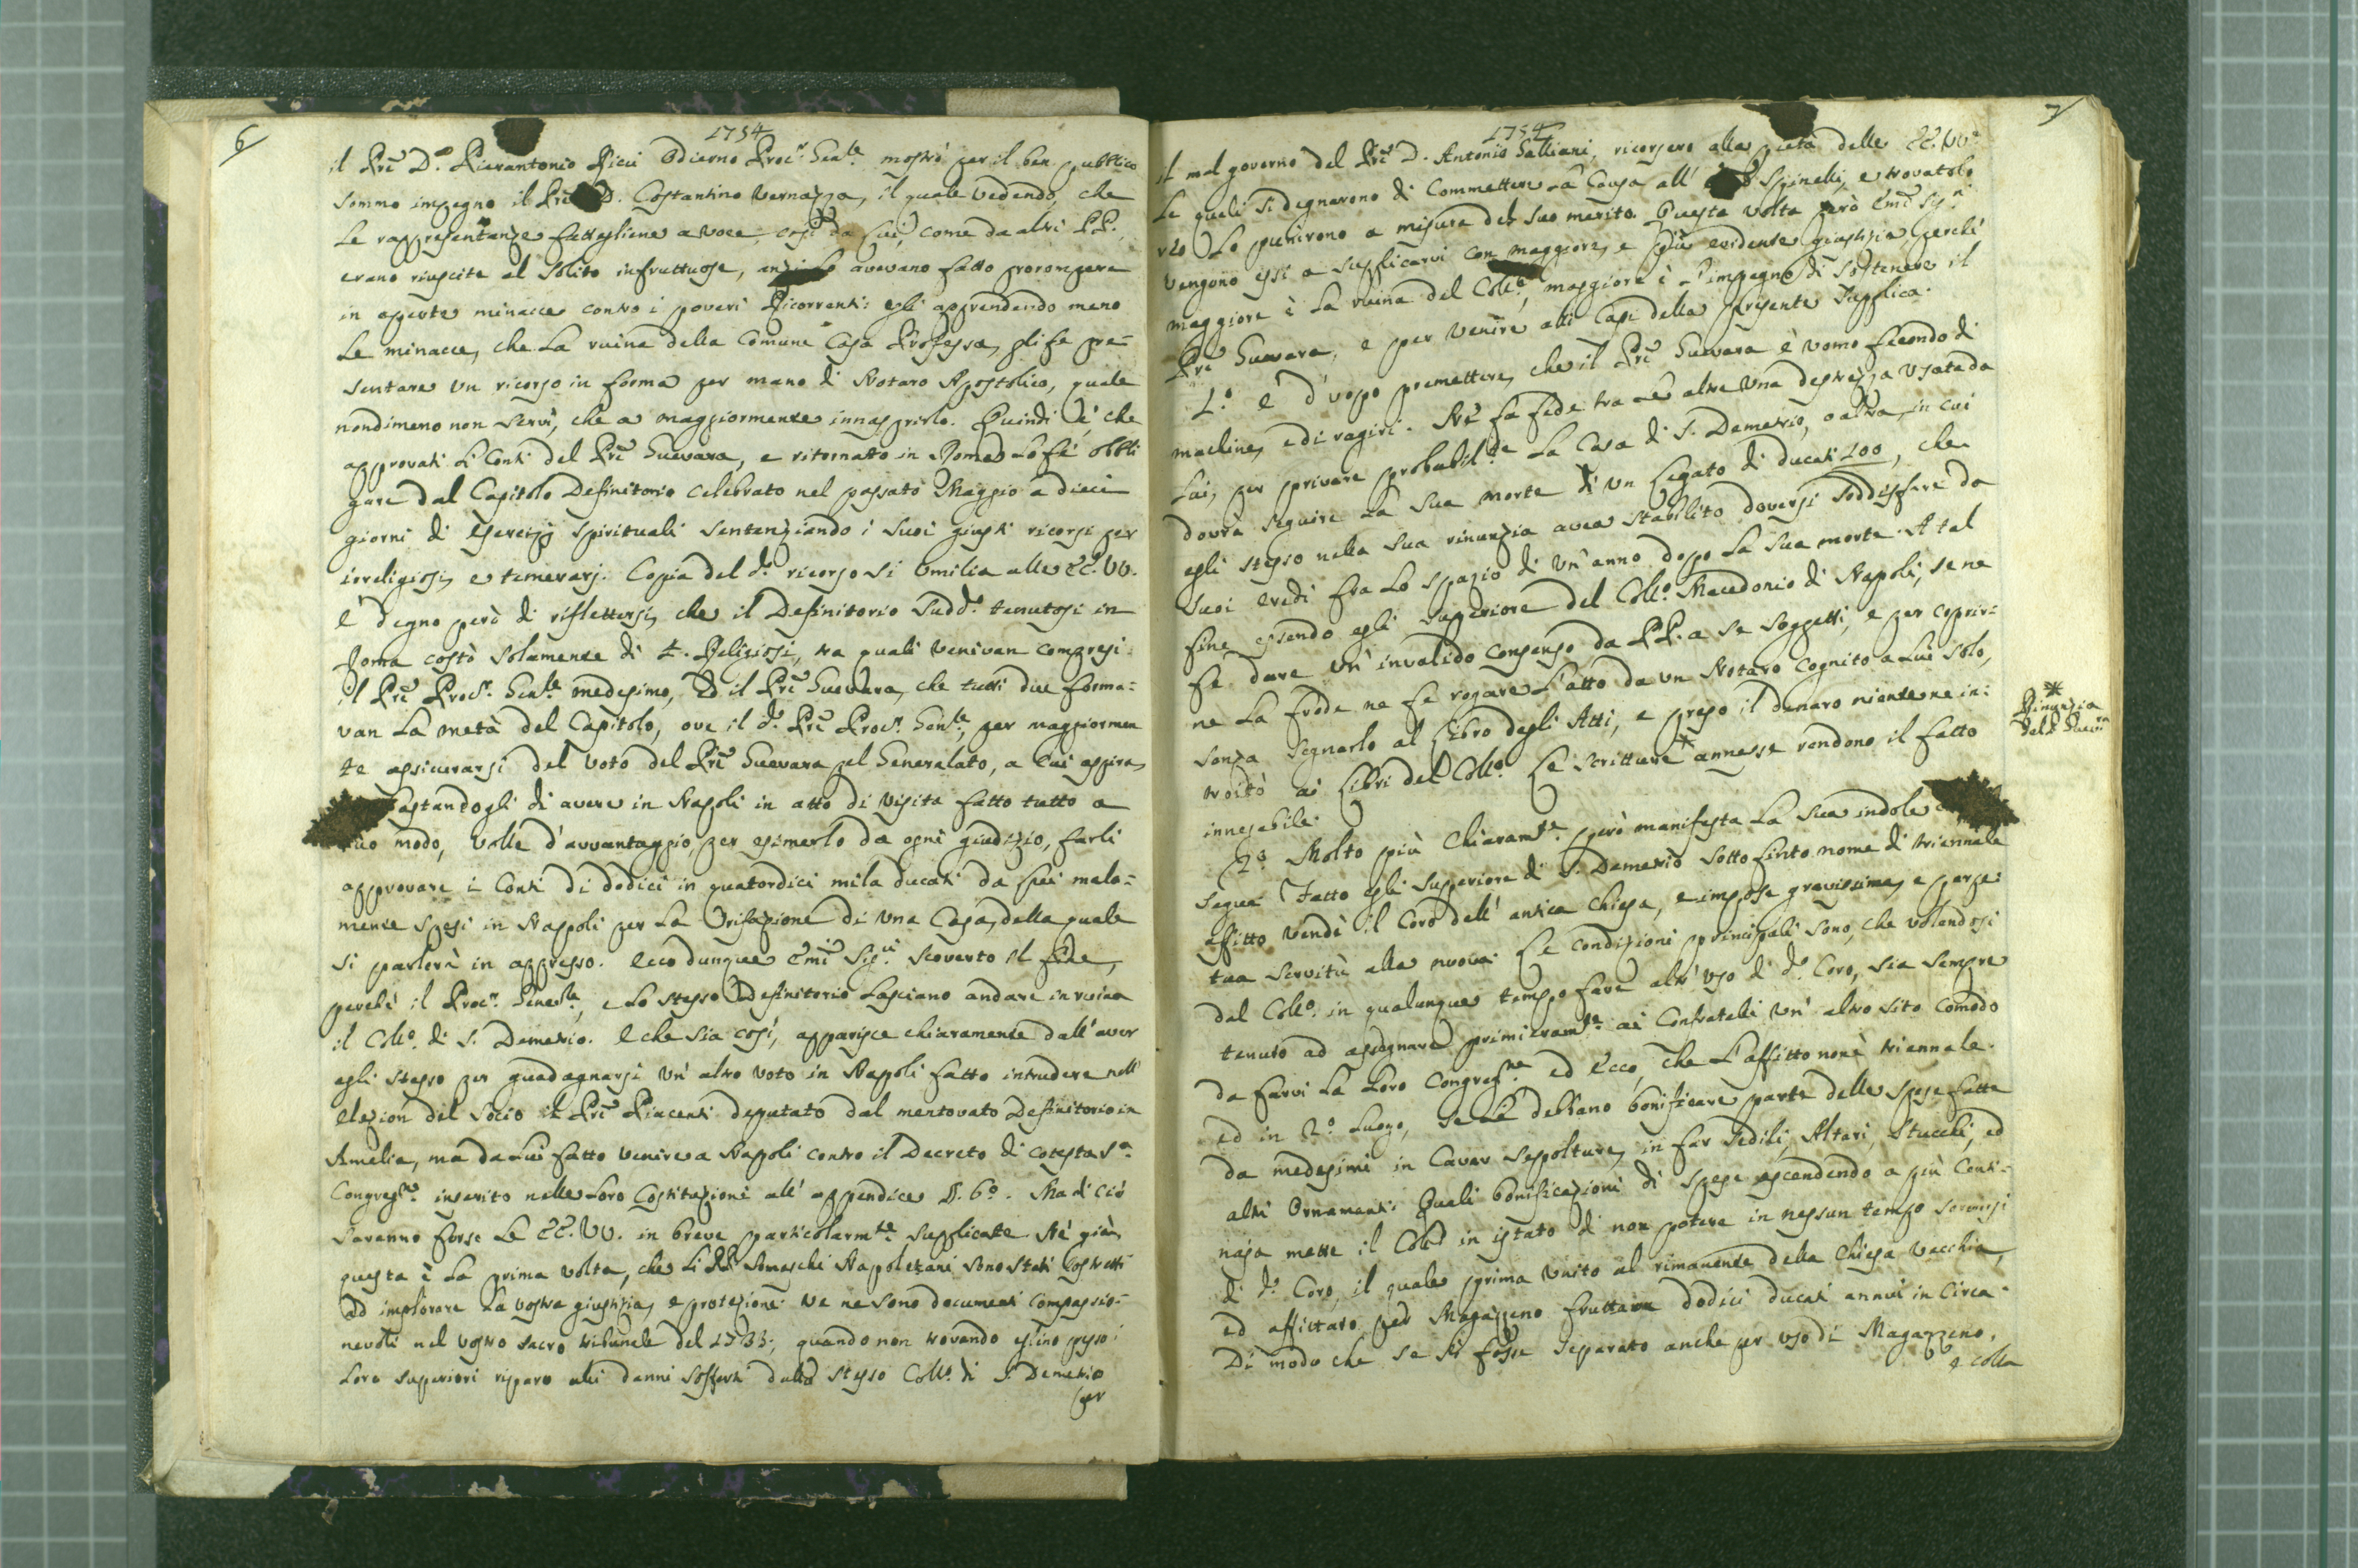 6
1754
il Prē D. Pierantonio Ricci Odierno Proc.r Gen.le mostrò per il ben pubblico
sommo impegno il Prē D. Costantino Vernazza, il quale vedendo, che
le rappresentanze fattegliene a voce, così da lui, come da altri PP.,
erano riuscite al solito infruttuose, anzi lo avevano fatto prorompere
in aperte minacce contro i poveri Ricorrenti: egli apprendendo meno
le minacce, che la ruina della Comune Casa Professa, gli fe pre=
sentare un ricorso in forma per mano di Notaro Apostolico, quale
nondimeno non servì, che a maggiormente innasprirlo. Quindi è, che
approvati li Conti del Prē Guevara, e ritornato in Roma lo fé obbli
gare dal Capitolo Definitorio celebrato nel passato Maggio a dieci
giorni di Esercizj spirituali sentenziando i suoi giusti ricorsi per
irreligiosi, e temerarj. Copia del d.o ricorso si umilia alle EE. VV.
È degno però di riflettersi, che il Definitorio sudd.o tenutosi in
Roma costò solamente di 4. Religiosi, tra quali venivan compresi
il Prē Proc.r Gen.le medesimo, ed il Prē Guevara, che tutti due forma=
van la metà del Capitolo, ove il d.o Prē Proc.r Gen.le per maggiormen
te assicurarsi del voto del Prē Guevara pel Generalato, a cui aspira,
bastandogli di avere in Napoli in atto di visita fatto tutto a
suo modo, volle d'avvantaggio per esimerlo da ogni giudizio, farli
approvare i Conti di dodici in quatordici mila ducati da lui mala=
mente spesi in Napoli per la rifazione di una Casa, della quale
si parlerà in appresso. Ecco dunque Emi Sig.ri scoverto il fine,
perchè il Proc.r Gene.le, e lo stesso Definitorio lasciano andare in ruina
il Coll.o di S. Demetrio. E che sia così, apparisce chiaramente dall'aver
egli stesso per guadagnarsi un altro voto in Napoli fatto intrudere nell'
elezion del Socio il Prē Piacenti deputato dal mentovato Definitorio in
Amelia, ma da lui fatto venire a Napoli contro il Decreto di cotesta S.a
Congreg.ne inserito nelle loro Costituzioni all'appendice §. 6.o. Ma di ciò
saranno forse le EE. VV. in breve particolarm.te supplicate. Nè già
questa è la prima volta, che li PP. Somaschi Napoletani sono stati costretti
ad implorare la vostra giustizia, e protezione: ve ne sono documenti compassio=
nevoli nel vostro sacro tribunale del 1733, quando non trovando eglino presso i
loro superiori riparo alli danni sofferti dallo stesso Coll.o di S. Demetrio
per
7
1754
il mal governo del Prē D. Antonio Galliani, ricorsero alla pietà delle EE. VV.
Le quali si degnarono di commettere la Causa all' Spinelli, e trovatolo
reo lo punirono a misura del suo merito. Questa volta però Emi Sig.ri
vengono essi a supplicarvi con maggiore, e più evidente giustizia, perchè
maggiore è la ruina del Coll.o, maggiore è l'impegno di sostenere il
Prē Guevara, e per venire alli Capi della presente supplica.
1.o È d'uopo premettere, che il Prē Guevara è uomo fecondo di
machine, e di ragiri. Ne fa fede tra le altre una destrezza usata da
lui, per privare probabil.te la Casa di S. Demetrio, o altra, in cui
dovrà seguire la sua morte di un legato di ducati 100, che
egli stesso nella sua rinunzia avea stabilito doversi soddisfare da
suoi eredi fra lo spazio di un'anno dopo la sua morte. A tal
fine essendo egli Superiore del Coll.o Macedonio di Napoli, se ne
fe dare un'invalido consenso da PP. a se soggetti, e per coprir=
ne la frode ne fe rogare l'atto da un Notaro cognito a lui solo,
senza segnarlo al Libro degli Atti, e preso il denaro niente ne in=
troitò ai Libri del Coll.o Le scritture* annesse rendono il fatto
innegabile.
* Rinunzia
del P. Guev.ra
2.o Molto più chiaram.te però manifesta la sua indole
segue. Fatto egli Superiore di S. Demetrio sotto finto nome di triennale
affitto vendè il Coro dell'antica Chiesa, e impose gravissima, e perpe=
tua servitù alla nuova. Le condizioni principali sono, che volendosi
dal Coll.o in qualunque tempo fare altr'uso di d.o Coro, sia sempre
tenuto ad assegnare primieram.te ai Confratelli un'altro sito comodo
da farvi la loro Congreg.ne ed ecco, che l'affitto non è triennale.
ed in 2.o luogo, se li debbano bonificare parte delle spese fatte
da medesimi in cavar sepolture, in far sedili, Altari, stucchi, ed
altri ornamenti. Quali bonificazioni di spese ascendendo a più Centi=
naja mette il Coll.o in istato di non potere in nessun tempo servirsi
di d.o Coro, il quale prima unito al rimanente della Chiesa vecchia,
ed affittato per Magazzeno fruttava dodici ducati annui in circa.
Di modo che se si fosse separato anche per uso di Magazzeno,
e colla